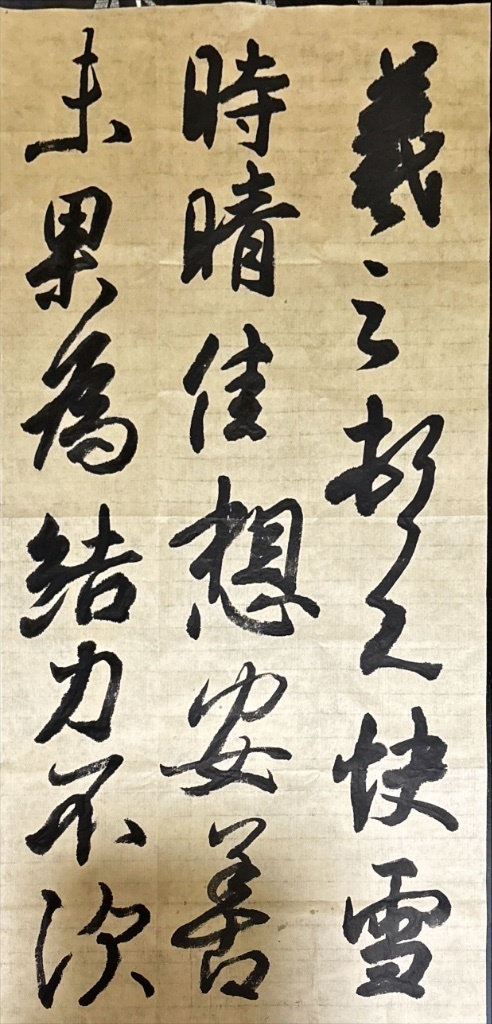 羲之頓首快雪
時晴佳想安善
未果為結力不次